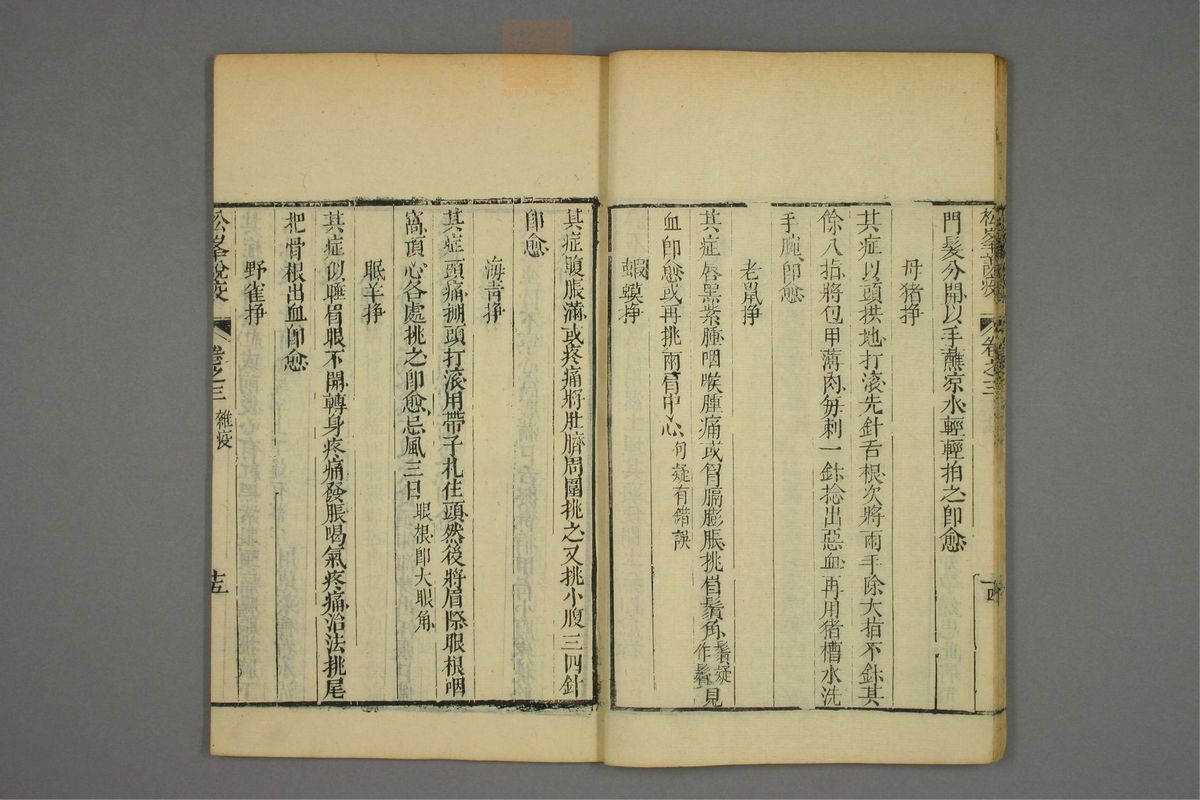 松峯說疫
卷之三
十四
門髮分開以手蘸凉水輕輕拍之卽愈
母猪挣
其症以頭拱地打滚先針舌根次將兩手除大指不針其
餘八指將包甲薄肉每刺一針捻出惡血再用猪槽水洗
手腕卽愈
老鼠挣
其症唇黑紫腫咽喉腫痛或胃膈膨脹挑眉鬚角鬚疑作鬢見
血卽愈或再挑兩肩中心句疑有錯誤
蝦蟆挣
其症腹脹滿或疼痛將肚臍周圍挑之又挑小腹三四針
卽愈
海青挣
其症頭痛捌頭打滚用帶子札住頭然後將眉際眼根咽
窩頂心各處挑之卽愈忌風三日眼根卽大眼角
眠羊挣
其症似睡眉眼不開轉身疼痛發脹喝氣疼痛治法挑尾
把骨根出血卽愈
野雀挣
松峯說疫
卷之三
雜疫
十五